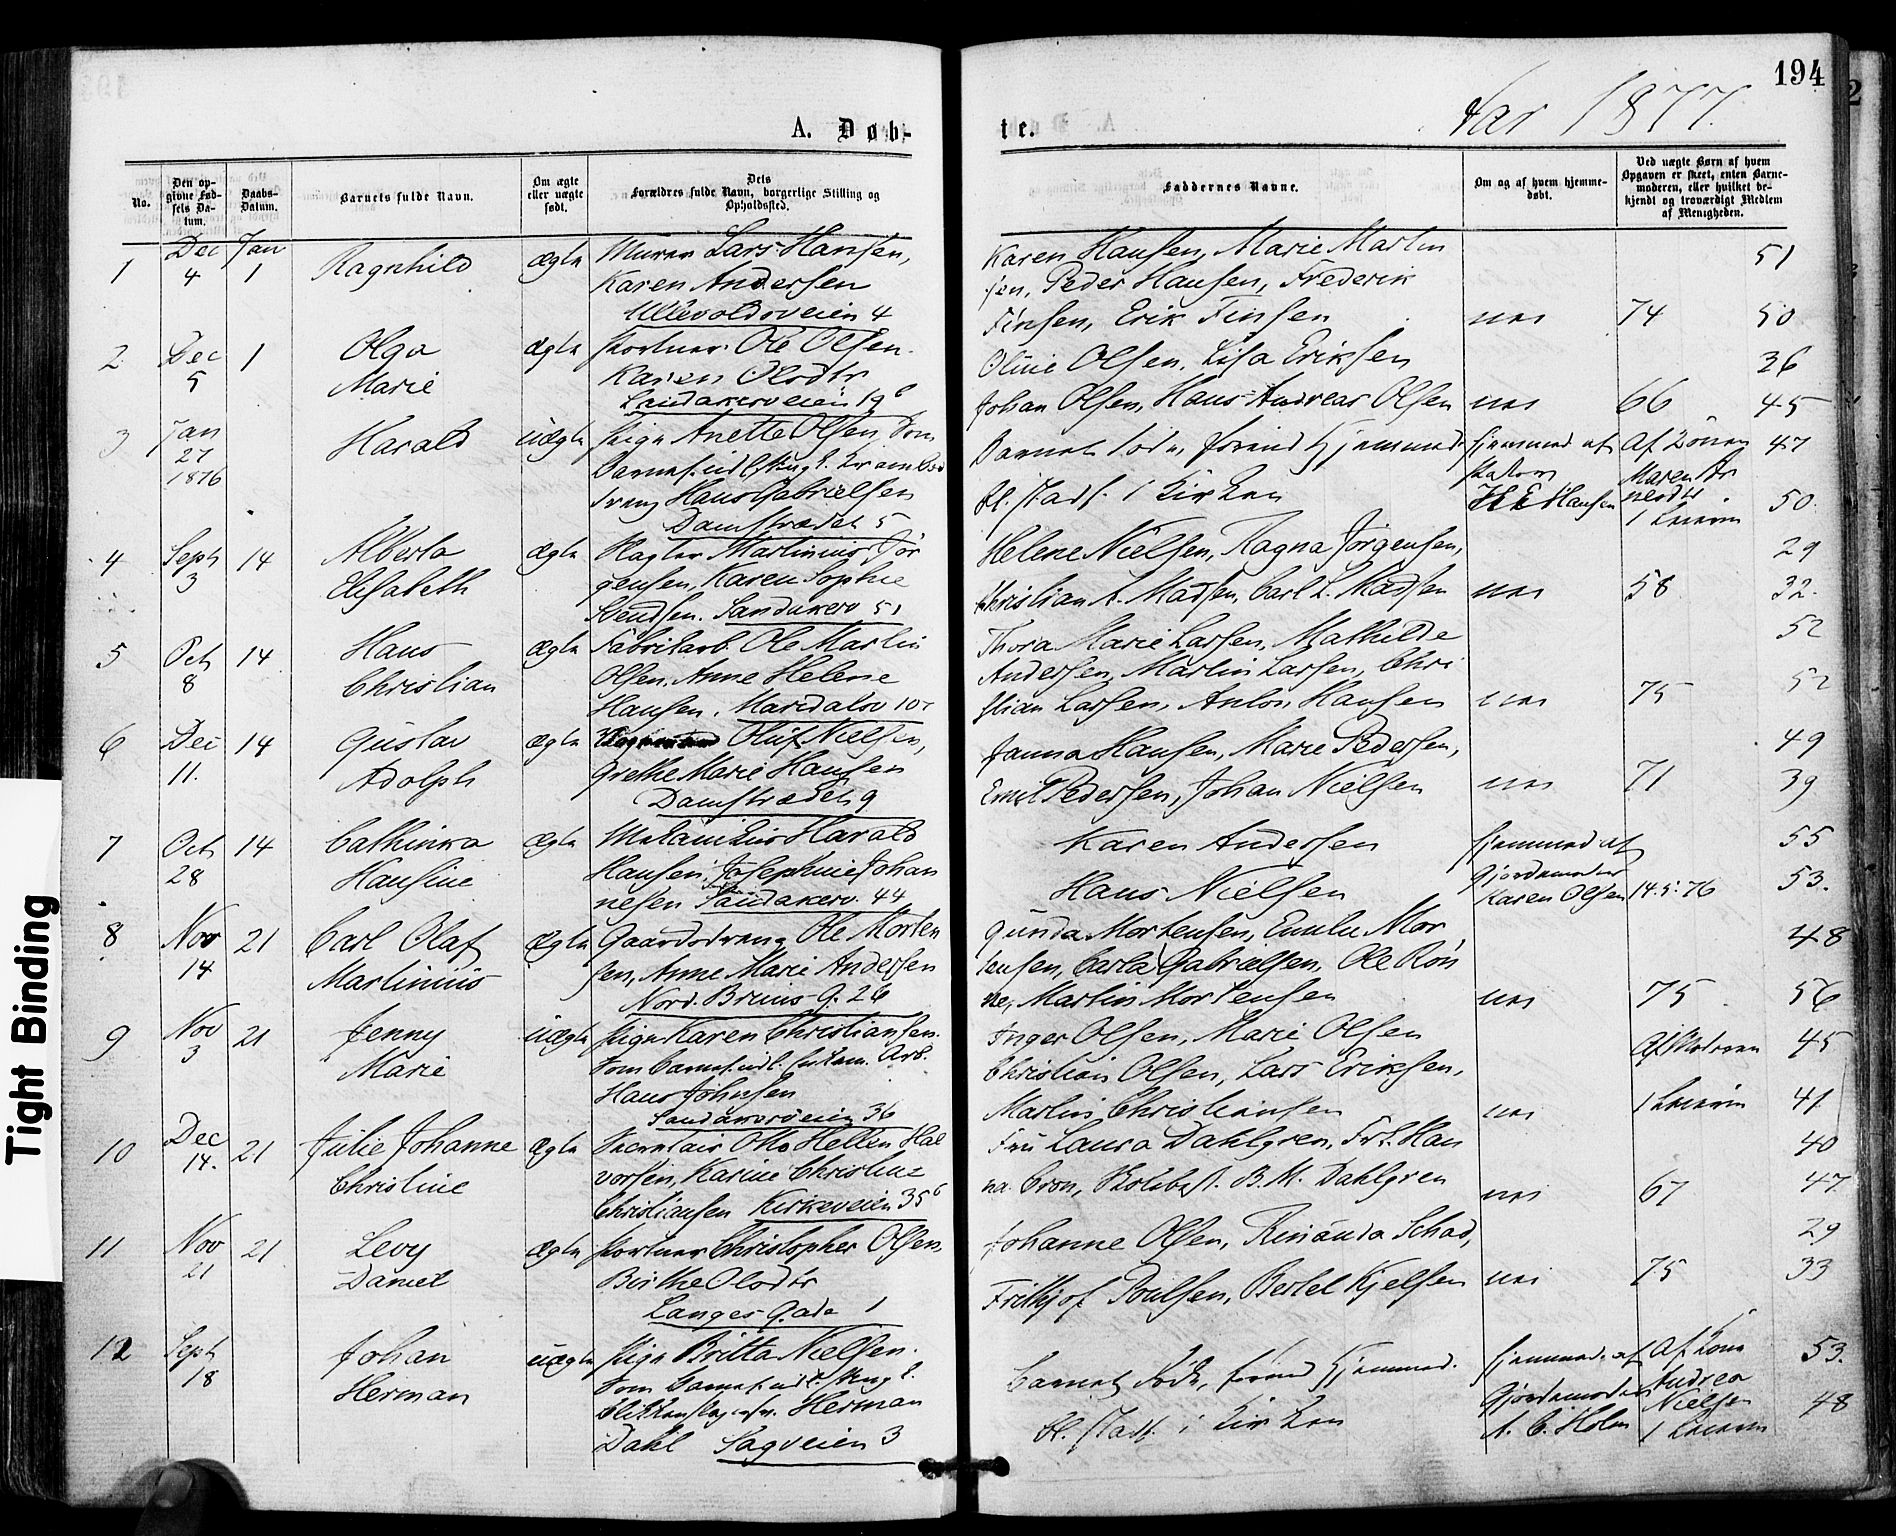 194
Aar 1877.
A. Døb-
te.
No.
Den op-
givne Fød-
sels Da-
tum.
Daabs-
Datum.
Barnets fulde Navn.
Om ægte
eller uægte
født.
Dets
Forældres fulde Navn, borgerlige Stilling og
Opholdssted.
Faddernes Navne.
Om og af hvem hjemme-
døbt.
Ved uægte Børn af hvem
Opgaven er skeet, enten Barne-
moderen, eller hvilket be-
kjendt og troværdigt Medlem
af Menigheden.
1 Dec 4 Jan 1 Ragnhild ægte Murer Lars Hansen,
Karen Andersen
Ullevoldsveien 4
Karen Hansen, Marie Martin
sen, Peder Hansen, Frederik
Finsen, Erik Finsen 74
51
50
2 Dec 5 1 Olga
Marie
ægte Portner Ole Olsen.
Karen Olsdtr
Sandakerveien 19 b
Oline Olsen, Lisa Eriksen
Johan Olsen, Hans Andreas Olsen 66
36
45
3 Jan
27
1876
Harald uægte Pige Anette Olsen, Som
Barnef. udl. Ungk.
Hans Gabrielsen
Damstrædet 5
Barnet døde, førend Hjemmed.
bl. stadf. i Kirken
Hjemmed. af
H E Hansen
47
50
4 Sept
3
14 Alberta
Elisabeth
ægte Slagter Martinius Jør
gensen, Karen Sophie
Svendsen. Sandakerv 51
Helene Nielsen, Ragna Jørgensen,
Christian A. Madsen, Carl L. Madsen 58
29
32.
5 Oct
8
14 Hans
Christian
ægte Fabrikarb. Ole Martin
Olsen. Anne Helene
Hansen. Maridalsv 107
Thora Marie Larsen, Mathilde
Andersen, Martin Larsen, Chri
stian Larsen, Anton Hansen 75
52
52
6 Dec
11.
14 Gustav
Adolph
ægte Oluf Nielsen,
Grethe Marie Hansen
Damstrædet 9
Janna Hansen, Marie Pedersen,
Emil Pedersen, Johan Nielsen 71
49
39
7 Oct
28
14 Cathinka
Hansine
ægte Mekanikus Harald
Hansen, Josephine Johan
nesen Sandakerv. 44
Karen Andersen
Hans Nielsen
Hjemmed. af
Gjordemoder
Karen Olsen 14.5.76
55
53.
8 Nov
14
21 Carl Olaf
Martinius
ægte Gaardsdreng Ole Morten
sen, Anne Marie Andersen
Nord. Bruns G. 26
Gunda Mortensen, Emilie Mor
tensen, Carla Gabrielsen, Ole Røn
ne, Martin Mortensen 75
48
56
9 Nov
3
21 Jenny
Marie
uægte Pige Karen Christiansen.
Som Barnef. udl. Arb.
Hans Johnsen
Sandakerveien 36
Inger Olsen, Marie Olsen
Christian Olsen, Lars Eriksen,
Martin Christiansen
Af Moderen
45
41
10 Dec
14.
21 Julie Johanne
Christine
ægte Secretair Otto Hellen Hal
vorsen, Karine Christine
Christiansen Kirkeveien 35 b
Fru Laura Dahlgren, Fr. Han
na Cron, Skolebest. B. M. Dahlgren 67
40
47
11 Nov
21
21 Levy
Daniel
ægte Portner Christopher Olsen,
Birthe Olsdtr
Langes Gade 1
Johanne Olsen, Rinanda Schad,
Frithjof Poulsen, Bertel Kjelsen 75
29
33
12 Sept
18
Johan
Herman
uægte Pige Britta Nielsen.
Som Barnef. udl. Ungk.
Herman
Dahl Sagveien 3
Barnet døde, førend Hjemmed.
bl. stadf. i Kirken
Hjemmed. af
Gjordemoder
A. C. Holm
Andrea
Nielsen
53.
48
Tight Binding